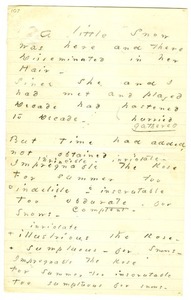 A little Snow
was here and there
Disseminated in her
Hair -
Since she and I
had met and played
Decade had hastened
to Decade - hurried
gathered
But Time had added
not obtained
Impregnable the Rose
For summer too
indelible inscrutable
for obdurate - for
Snows -
illustrious the Rose -
sumptuous - for Snows -
Impregnable the Rose
for summer too inscrutable
too sumptuous for snows -